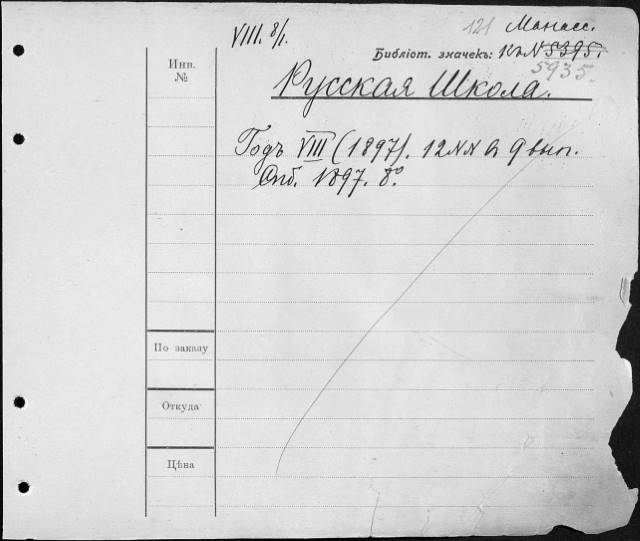 VIII. 8/I.
121 Манасс.
Библіот. значекъ: КъN 5395.
5935.
Инв.
№
Русская Школа.
Годъ VIII (1897). 12NN въ 9 вып.
Спб. 1897. 8º.
По заказу
Откуда
Цѣна